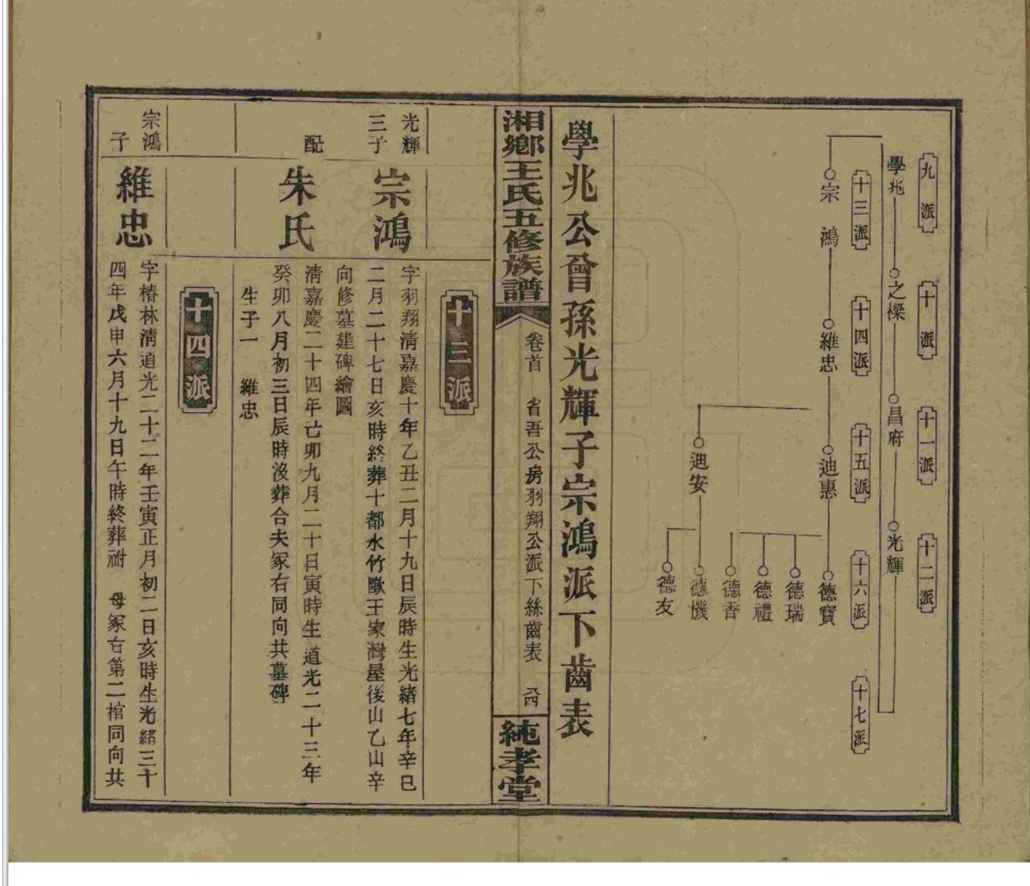 九派
十派
十一派
十二派
學兆
之檪
昌府
光輝
十三派
十四派
十五派
十六派
十七派
宗鴻
維忠
迪惠
德寶
德瑞
德禮
德香
迪安
德機
德友
學兆公曾孫光輝子宗鴻派下齒表
湘鄉王氏五修族譜
卷首
省吾公房羽翔公派下絲齒表
純孝堂
十三派
光輝
三子
宗鴻
字羽翔清嘉慶十年乙丑二月十九日辰時生光緒七年辛巳
二月二十七日亥時終葬十都水竹墩王家灣屋後山乙山辛
向修墓建碑繪圖
配
朱氏
清嘉慶二十四年己卯九月二十日寅時生道光二十三年
癸卯八月初三日辰時沒葬合夫冢右同向共墓碑
生子一 維忠
十四派
宗鴻
子
維忠
字椿林清道光二十二年壬寅正月初二日亥時生光緒三十
四年戊申六月十九日午時終葬祔 母冢右第二棺同向共